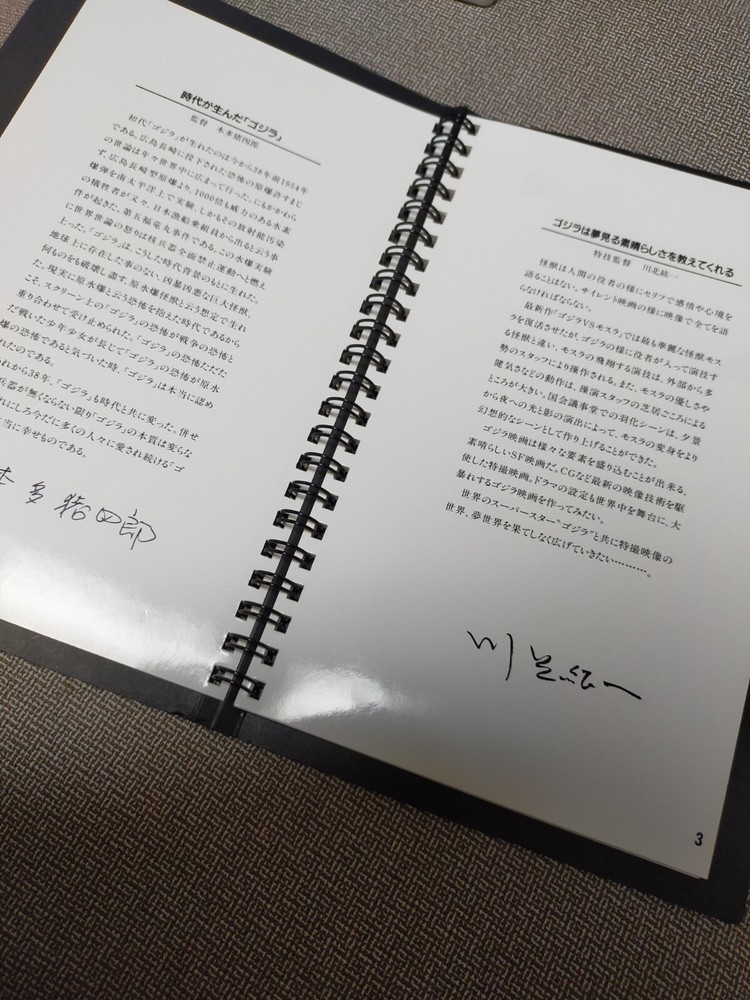 時代が生んだ「ゴジラ」
監督 本多猪四郎
初代「ゴジラ」が生れたのは今から38年前1954年
である。広島長崎に投下された恐怖の原爆許すまじ
の世論は年々世界中に広まって行った。にもかかわら
ず、広島長崎型原爆より、1000倍も威力のある水素
爆弾を南太平洋上で実験、しかもその放射能汚染
の犠牲者が又々、日本漁船乗組員から出ると云う事
件が起きた。第五福竜丸事件である。この水爆実験
に世界世論の怒りは核兵器全面禁止運動へと燃え
上った。「ゴジラ」は、こうした時代背景のもとに生れた。
地球上に存在した事のない、凶暴凶悪な巨大怪獣、
何ものをも破壊し盡す、原水爆怪獣と云う想定で生れ
た。現実に原水爆と云う恐怖を抱えた時代であるから
こそ、スクリーン上の「ゴジラ」の恐怖が戦争の恐怖と
重り合わせて受け止められた。「ゴジラ」の恐怖ただた
だ戦いた少年少女が長じて「ゴジラ」の恐怖が原水
爆の恐怖であると気づいた時、「ゴジラ」は本当に認め
れたのである。
れから38年、「ゴジラ」も時代と共に変った。併せ
兵器が無くならない限り「ゴジラ」の本質は変らな
れにしろ今だに多くの人々に愛され続ける「ゴ
当に幸せものである。
本多猪四郎
ゴジラは夢見る素晴らしさを教えてくれる
特技監督 川北紘一
怪獣は人間の役者の様にセリフで感情や心境を
語ることはない。サイレント映画の様に映像で全てを語
らなければならない。
最新作「ゴジラVSモスラ」では最も華麗な怪獣モス
ラを復活させたが、ゴジラの様に役者が入って演技す
る怪獣と違い、モスラの飛翔する演技は、外部から多
勢のスタッフにより操作される。また、モスラの優しさや
健気さなどの動作は、操演スタッフの芝居ごころによる
ところが大きい。国会議事堂での羽化シーンは、夕景
から夜への光と影の演出によって、モスラの変身をより
幻想的なシーンとして作り上げることができた。
ゴジラ映画は様々な要素を盛り込むことが出来る、
素晴らしいSF映画だ。CGなど最新の映像技術を駆
使した特撮映画。ドラマの設定も世界中を舞台に、大
暴れするゴジラ映画を作ってみたい。
世界のスーパースター“ゴジラ”と共に特撮映像の
世界、夢世界を果てしなく広げていきたい………。
川北紘一
3